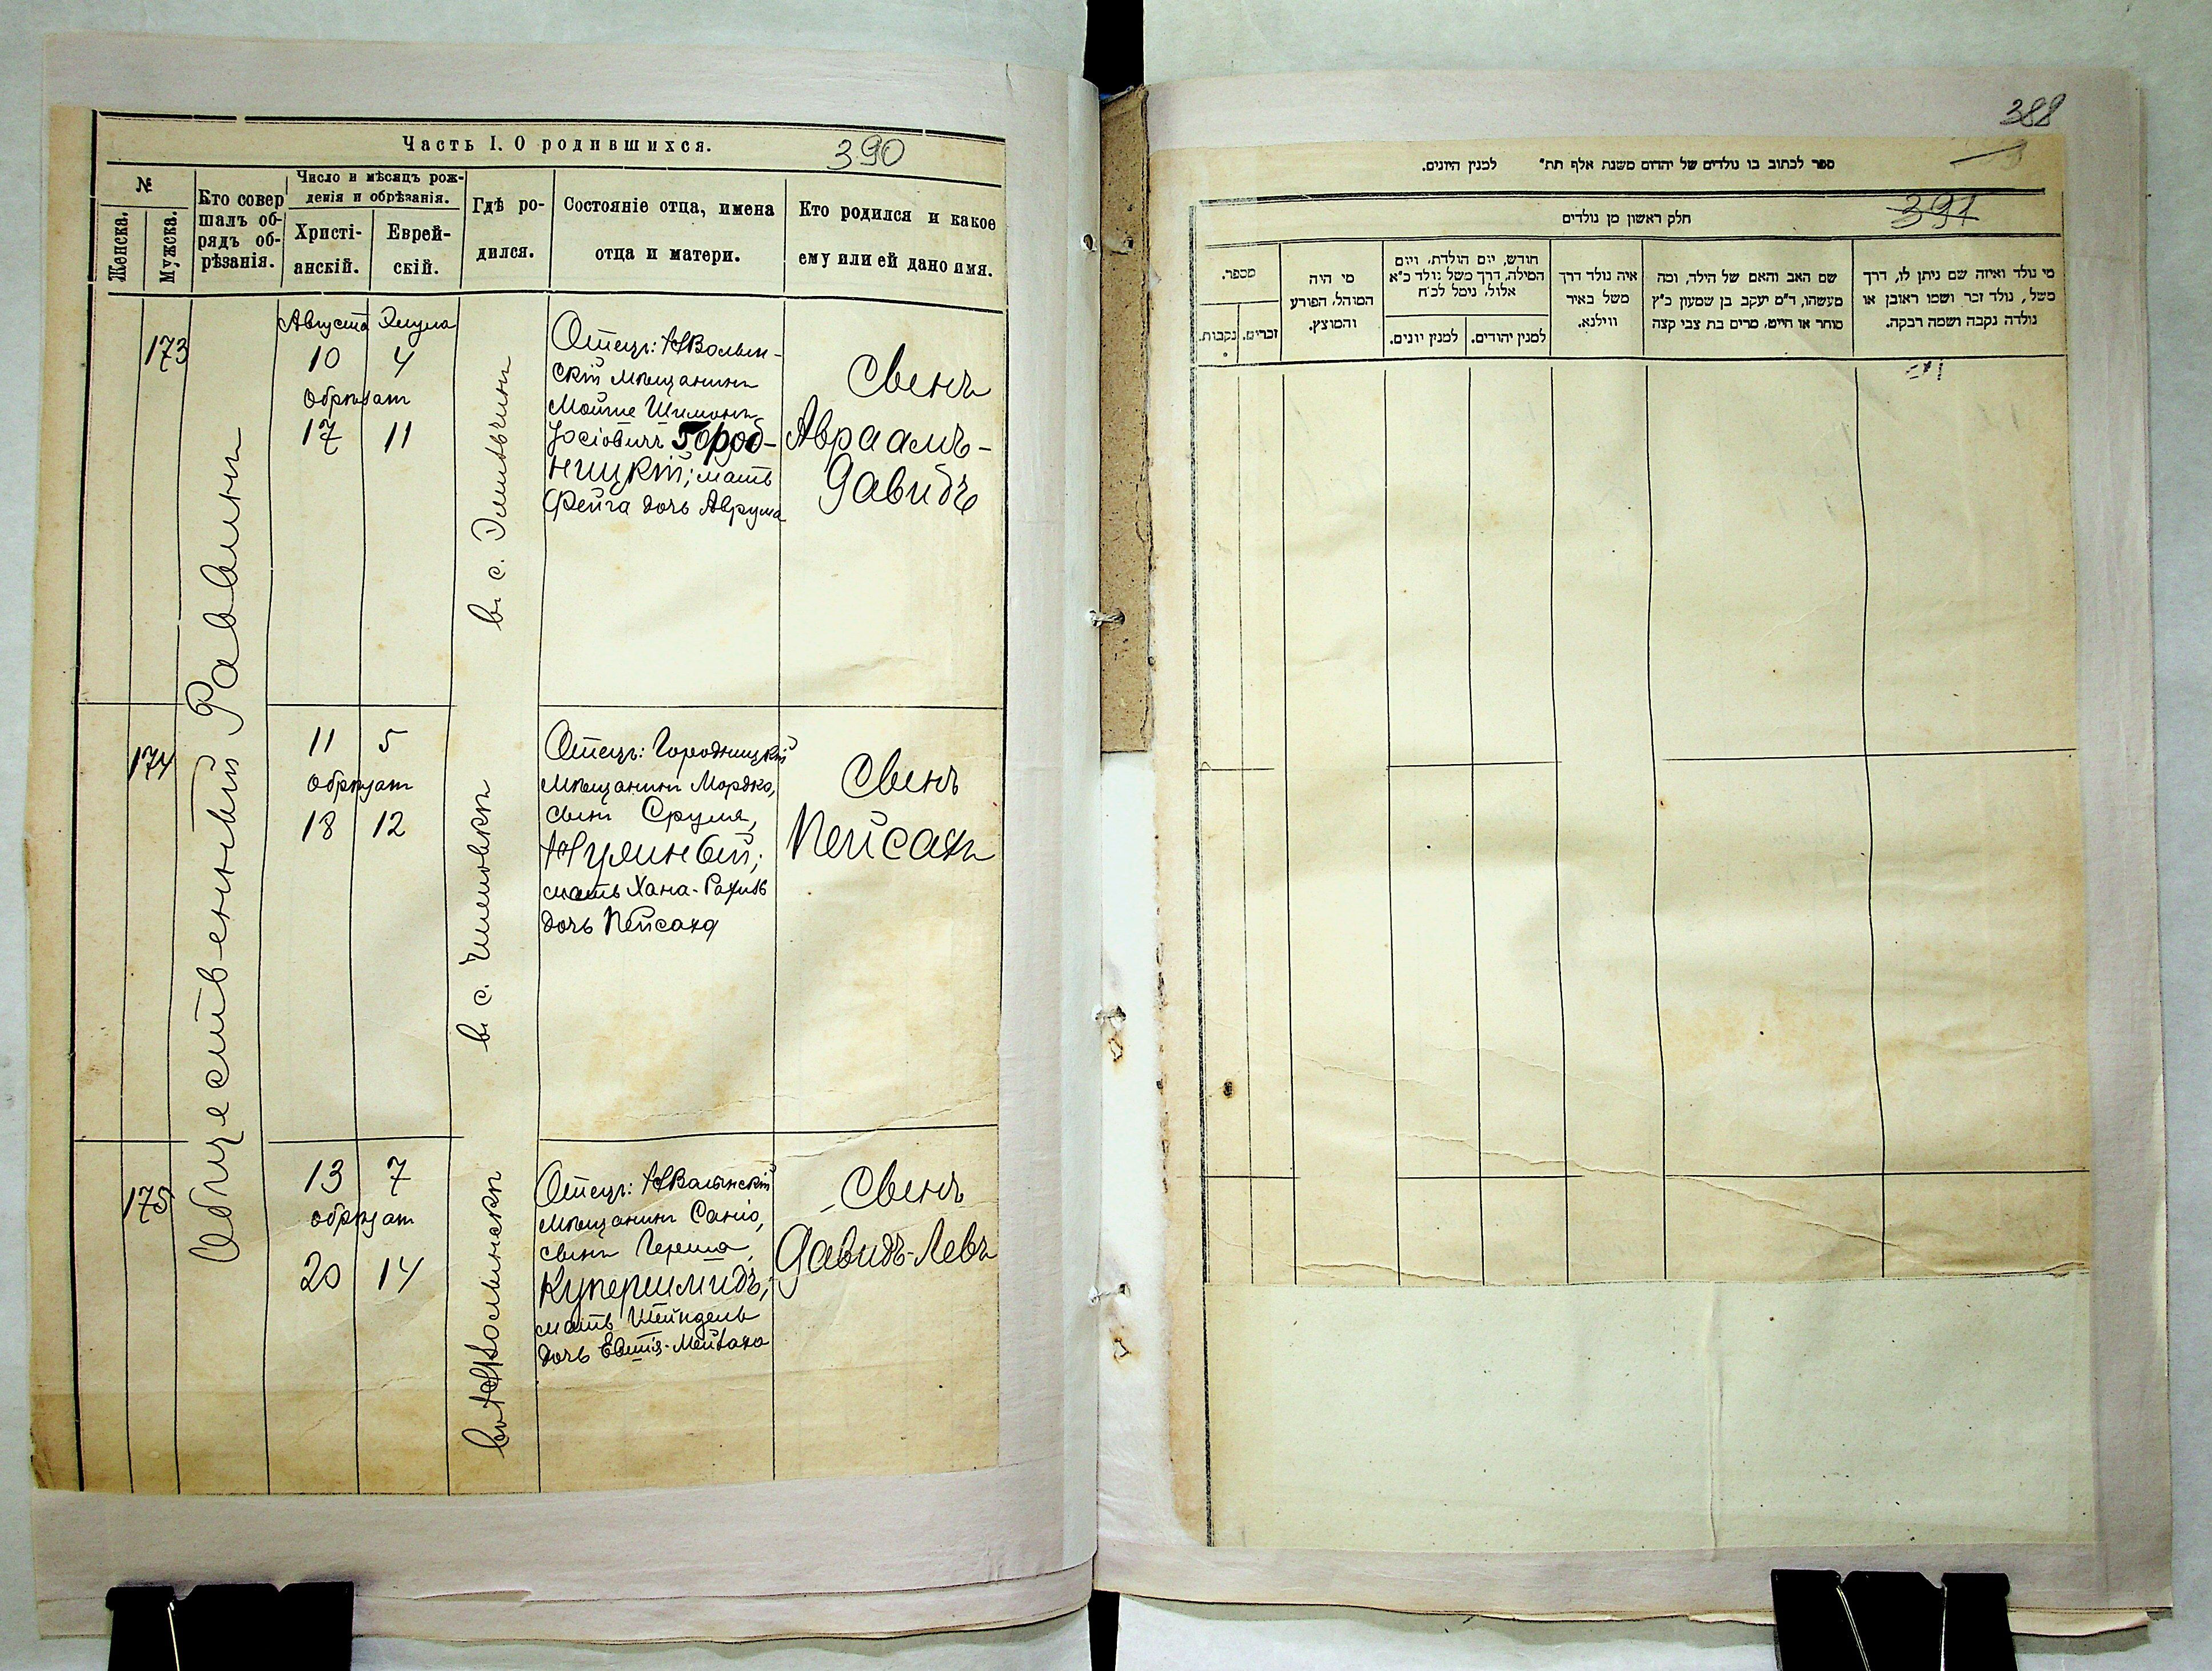 Часть I. О родившихся.
390
№
Женска.
Мужска.
Кто совер
шалъ об-
рядъ об-
рѣзанія.
Число и мѣсяцъ рож-
денія и обрѣзанія.
Христі-
анскій.
Еврей-
скій.
Гдѣ ро-
дился.
Состояніе отца, имена
отца и матери.
Кто родился и какое
ему или ей дано имя.
Общественный Раввинъ
173
Августа Элула
10 4
обрѣзат
17 11
в. с. Эмильчинѣ
Отецъ: НВолын-
скій мѣщанинъ
Мойше Шимонъ
Іосіовичъ Город-
ницкій; мать
Фейга дочь Аврума
Сынъ
Авраамъ-
Давидъ
174
11 5
обрѣзат
18 12
в. с.
Отецъ: Городницкій
мѣщанинъ Мордко,
сынъ Сруля,
мать Хана-Рахиль
дочь Пейсаха
Сынъ
Пейсахъ
175
13 7
обрѣзат
20 14
въ НВолынскѣ
Отецъ: НВолынскій
мѣщанинъ
сынъ Герша
Купершмидъ;
мать Шейндель
дочь
Сынъ
Давидъ-Левъ
388
ספר לכתוב בו נולדים של יהדום משנת אלף תת״ למנין היונים.
391
חלק ראשון מן נולדים
מי נולד ואיזה שם ניתן לו, דרך
משל, נולד זכר ושמו ראובן או
נולדה נקבה ושמה רבקה.
שם האב והאם של הילד, ומה
מעשהו, ד״מ יעקב בן שמעון כ״ץ
סוחר או חייט, מרים בת צבי קצה
איה נולד דרך
משל באיר
ווילנא.
חודש, יום הולדת, ויום
המילה, דרך משל נולד כ״א
אלול, נימל לכ״ח
למנין יהודים.
למנין יונים.
מי היה
המוהל, הפורע
והמוצץ.
מספר.
זכרים.
נקבות.